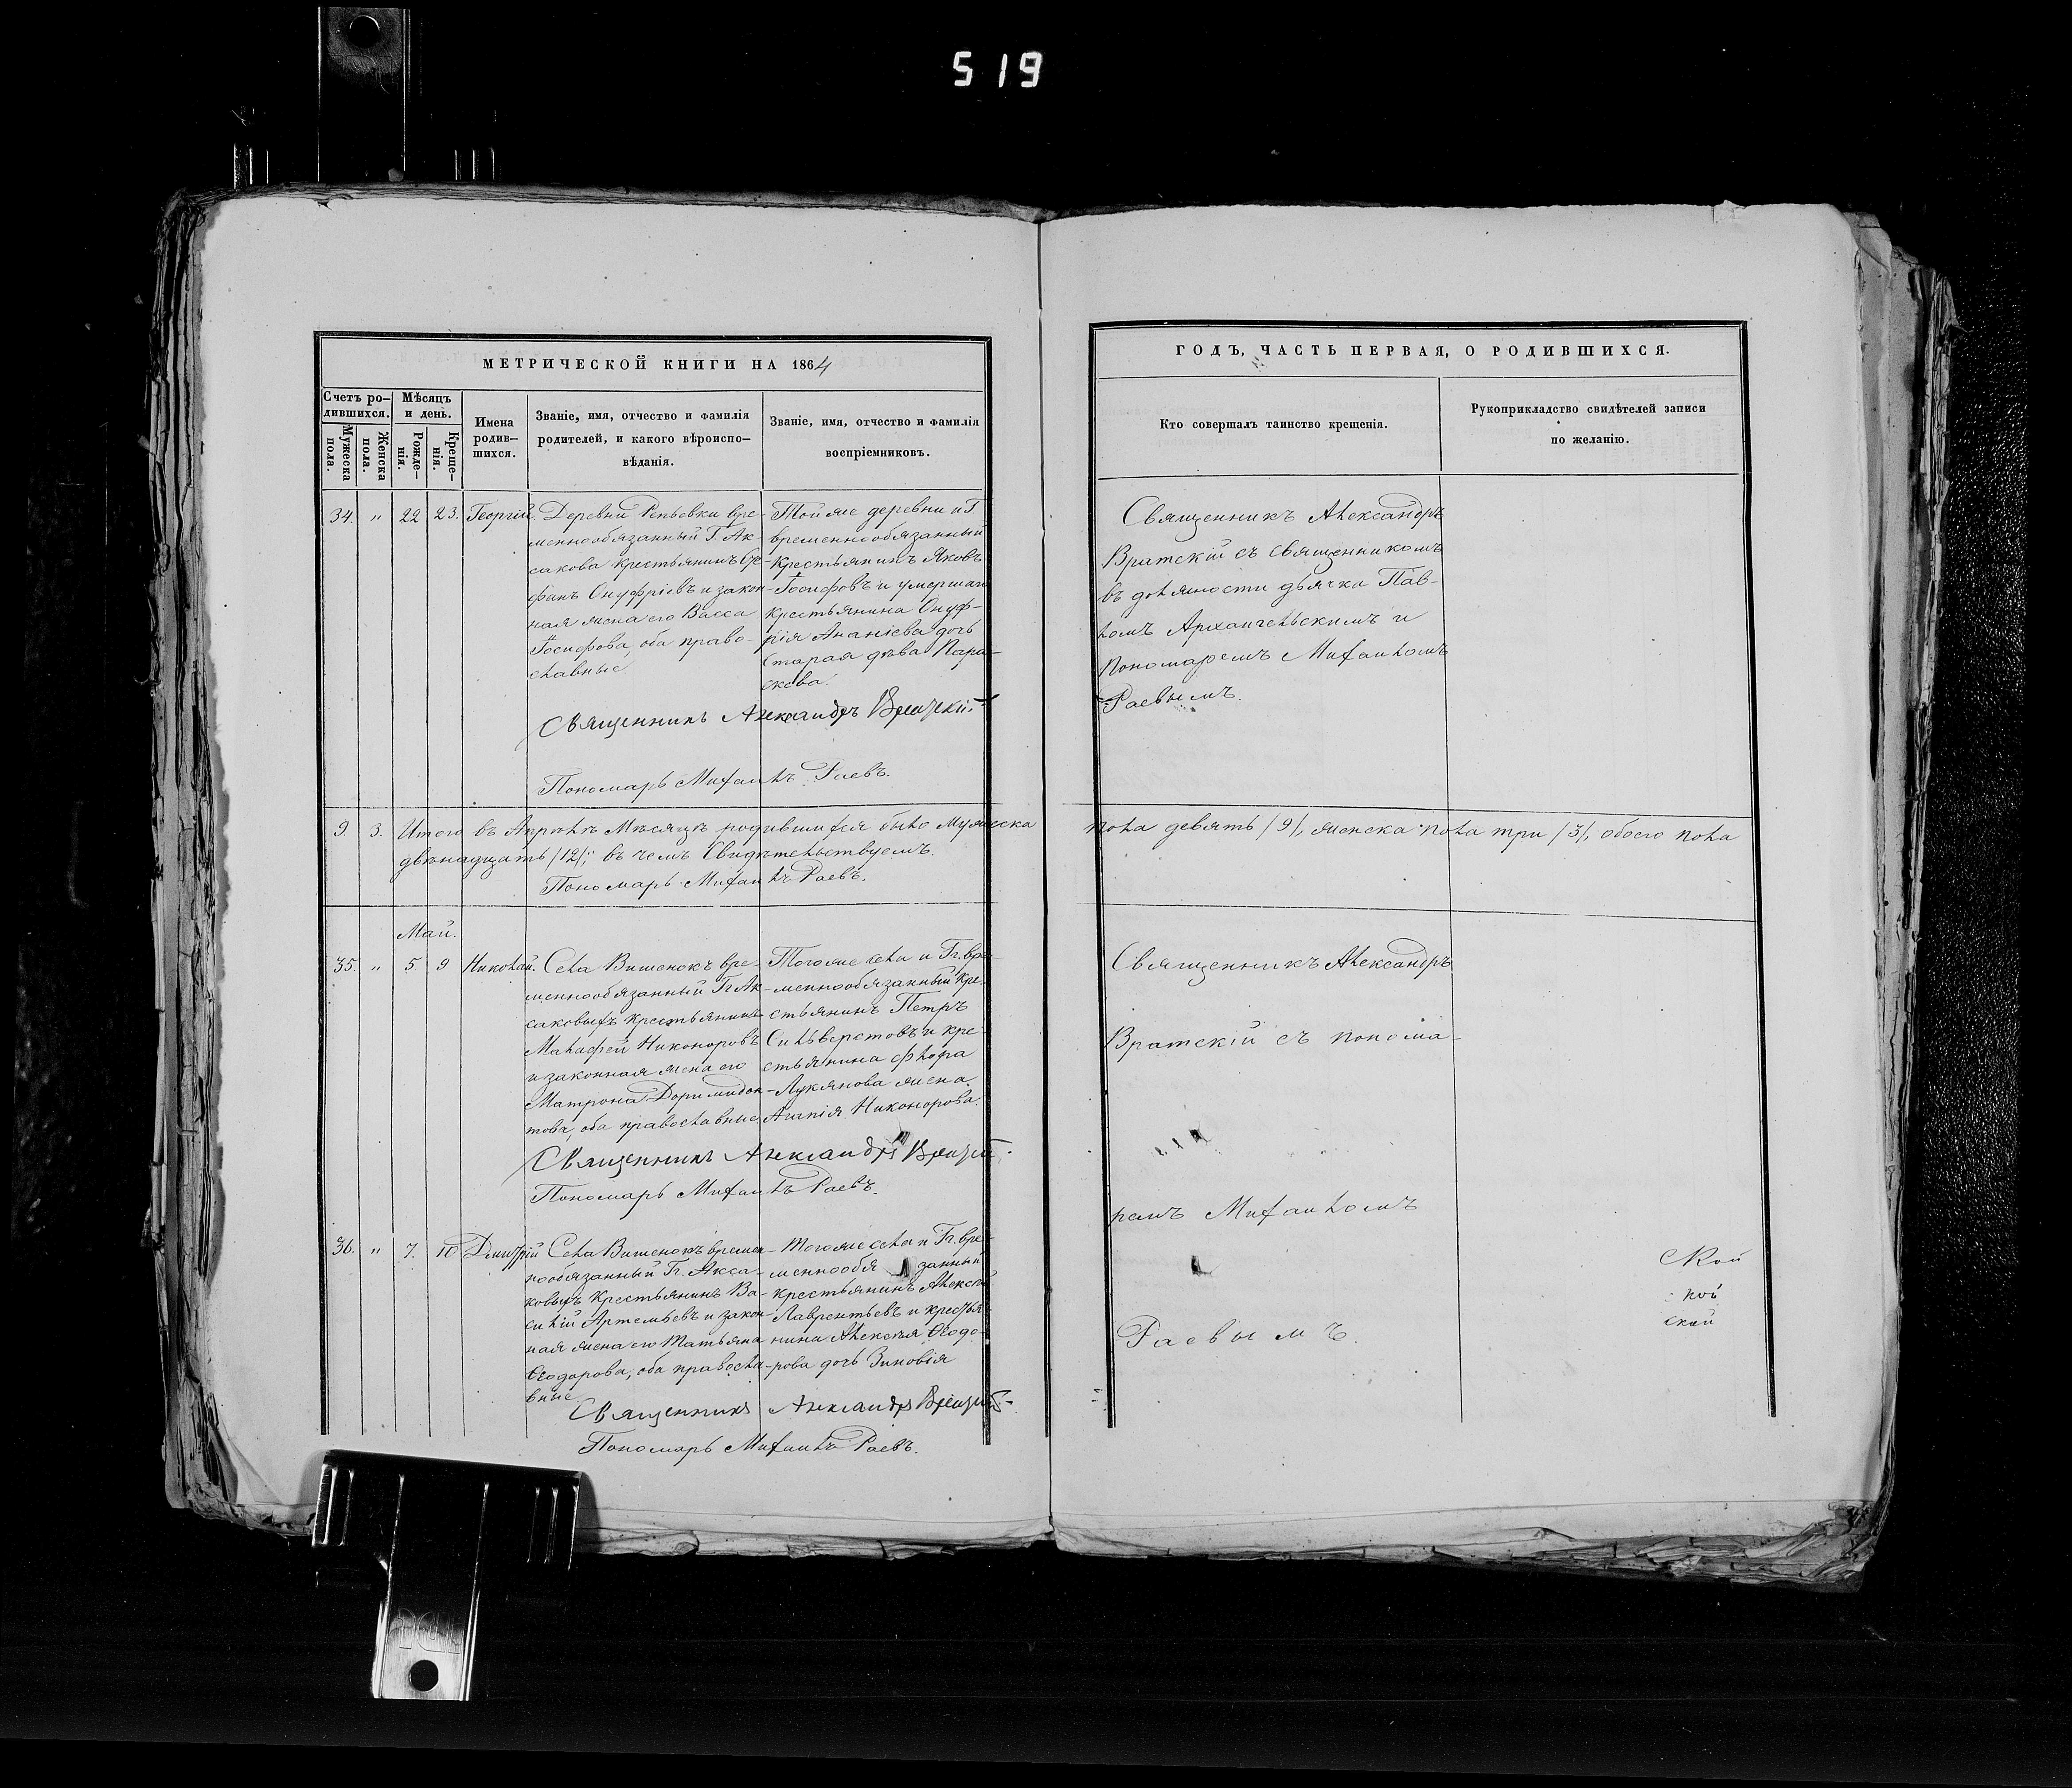 519
МЕТРИЧЕСКОЙ КНИГИ НА 1864
Счетъ ро-
дившихся.
Мужеска
пола.
Женска
пола.
Мѣсяцъ
и день.
Рожде-
нія.
Креще-
нія.
Имена
родив-
шихся.
Званіе, имя, отчество и фамилія
родителей, и какого вѣроиспо-
вѣданія.
Званіе, имя, отчество и фамилія
воспріемниковъ.
34. " 22 23. Георгій.
Деревни Репьевки вре-
меннообязанный Г. Ак-
сакова крестьянинъ Сте-
фанъ Онуфріевъ и закон-
ная жена его Васса
Іосифова, оба право-
славные
Той же деревни и Г
временнообязанный
крестьянинъ Яковъ
Іосифовъ и умершаго
крестьянина Онуф-
рія Ананіева дочь
старая дѣва Пара-
скева.
Священникъ Александръ Вратскій
Пономарь Михаилъ Раевъ.
9. 3. Итого въ Апрѣлѣ Мѣсяцѣ родившихся было мужеска
двѣнадцать /12/; въ чемъ Свидѣтельствуемъ.
Пономарь Михаилъ Раевъ.
Май.
35. " 5. 9 Николай.
Села Вишенокъ вре-
меннообязанный Гг. Ак-
саковыхъ крестьянинъ
Малафей Никоноровъ
и законная жена его
Матрона Доримидон-
това, оба православные
Того же села и Гг. вре-
меннообязанный кре-
стьянинъ Петръ
Сильверстовъ и кре-
стьянина Флора
Лукянова жена
Агапія Никонорова.
Священникъ Александръ Вратскій
Пономарь Михаилъ Раевъ.
36. " 7. 10 Дмитрій
Села Вишенокъ времен-
нообязанный Гг. Акса-
ковыхъ крестьянинъ Ва-
силій Артемьевъ и закон-
ная жена его Татьяна
Ѳеодорова, оба правосла-
вные
Того же села и Гг. вре-
меннообязанный
крестьянинъ Алексѣй
Лаврентьевъ и крестья-
нина Алексѣя Ѳеодо-
рова дочь Зиновія
Священникъ Александръ Вратскій
Пономарь Михаилъ Раевъ.
ГОДЪ, ЧАСТЬ ПЕРВАЯ, О РОДИВШИХСЯ.
Кто совершалъ таинство крещенія.
Рукоприкладство свидѣтелей записи
по желанію.
Священникъ Александръ
Вратскій съ священникомъ
въ должности дьячка Пав-
ломъ Архангельскимъ и
пономаремъ Михаиломъ
Раевымъ.
пола девять /9/, женска пола три /3/, обоего пола
Священникъ Александръ
Вратскій съ понома-
ремъ Михаиломъ
Раевымъ.
ской
ной
ской